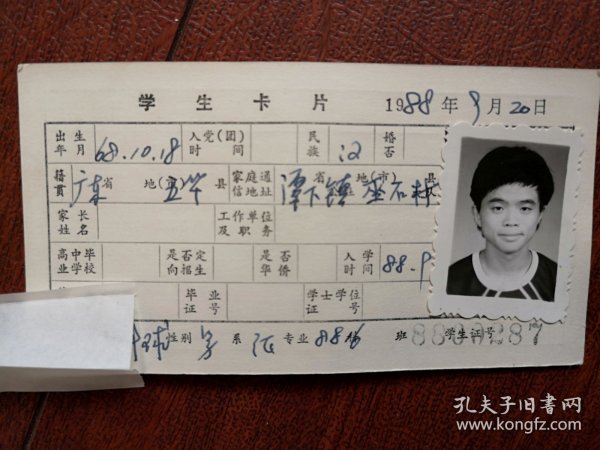 学生卡片 1988年9月20日
出生年月 68.10.18 入党(团)时间 民族 汉 婚否
籍贯 广东省 地(市) 五华县 家庭通信地址 省 地(市) 县 潭下镇
家长姓名 工作单位及职务
高中毕业学校 是否定向招生 是否华侨 入学时间 88.9
毕业证号 学士学位证号
性别 男 系 专业 88 班 学生证号
孔夫子旧书网
www.kongfz.com